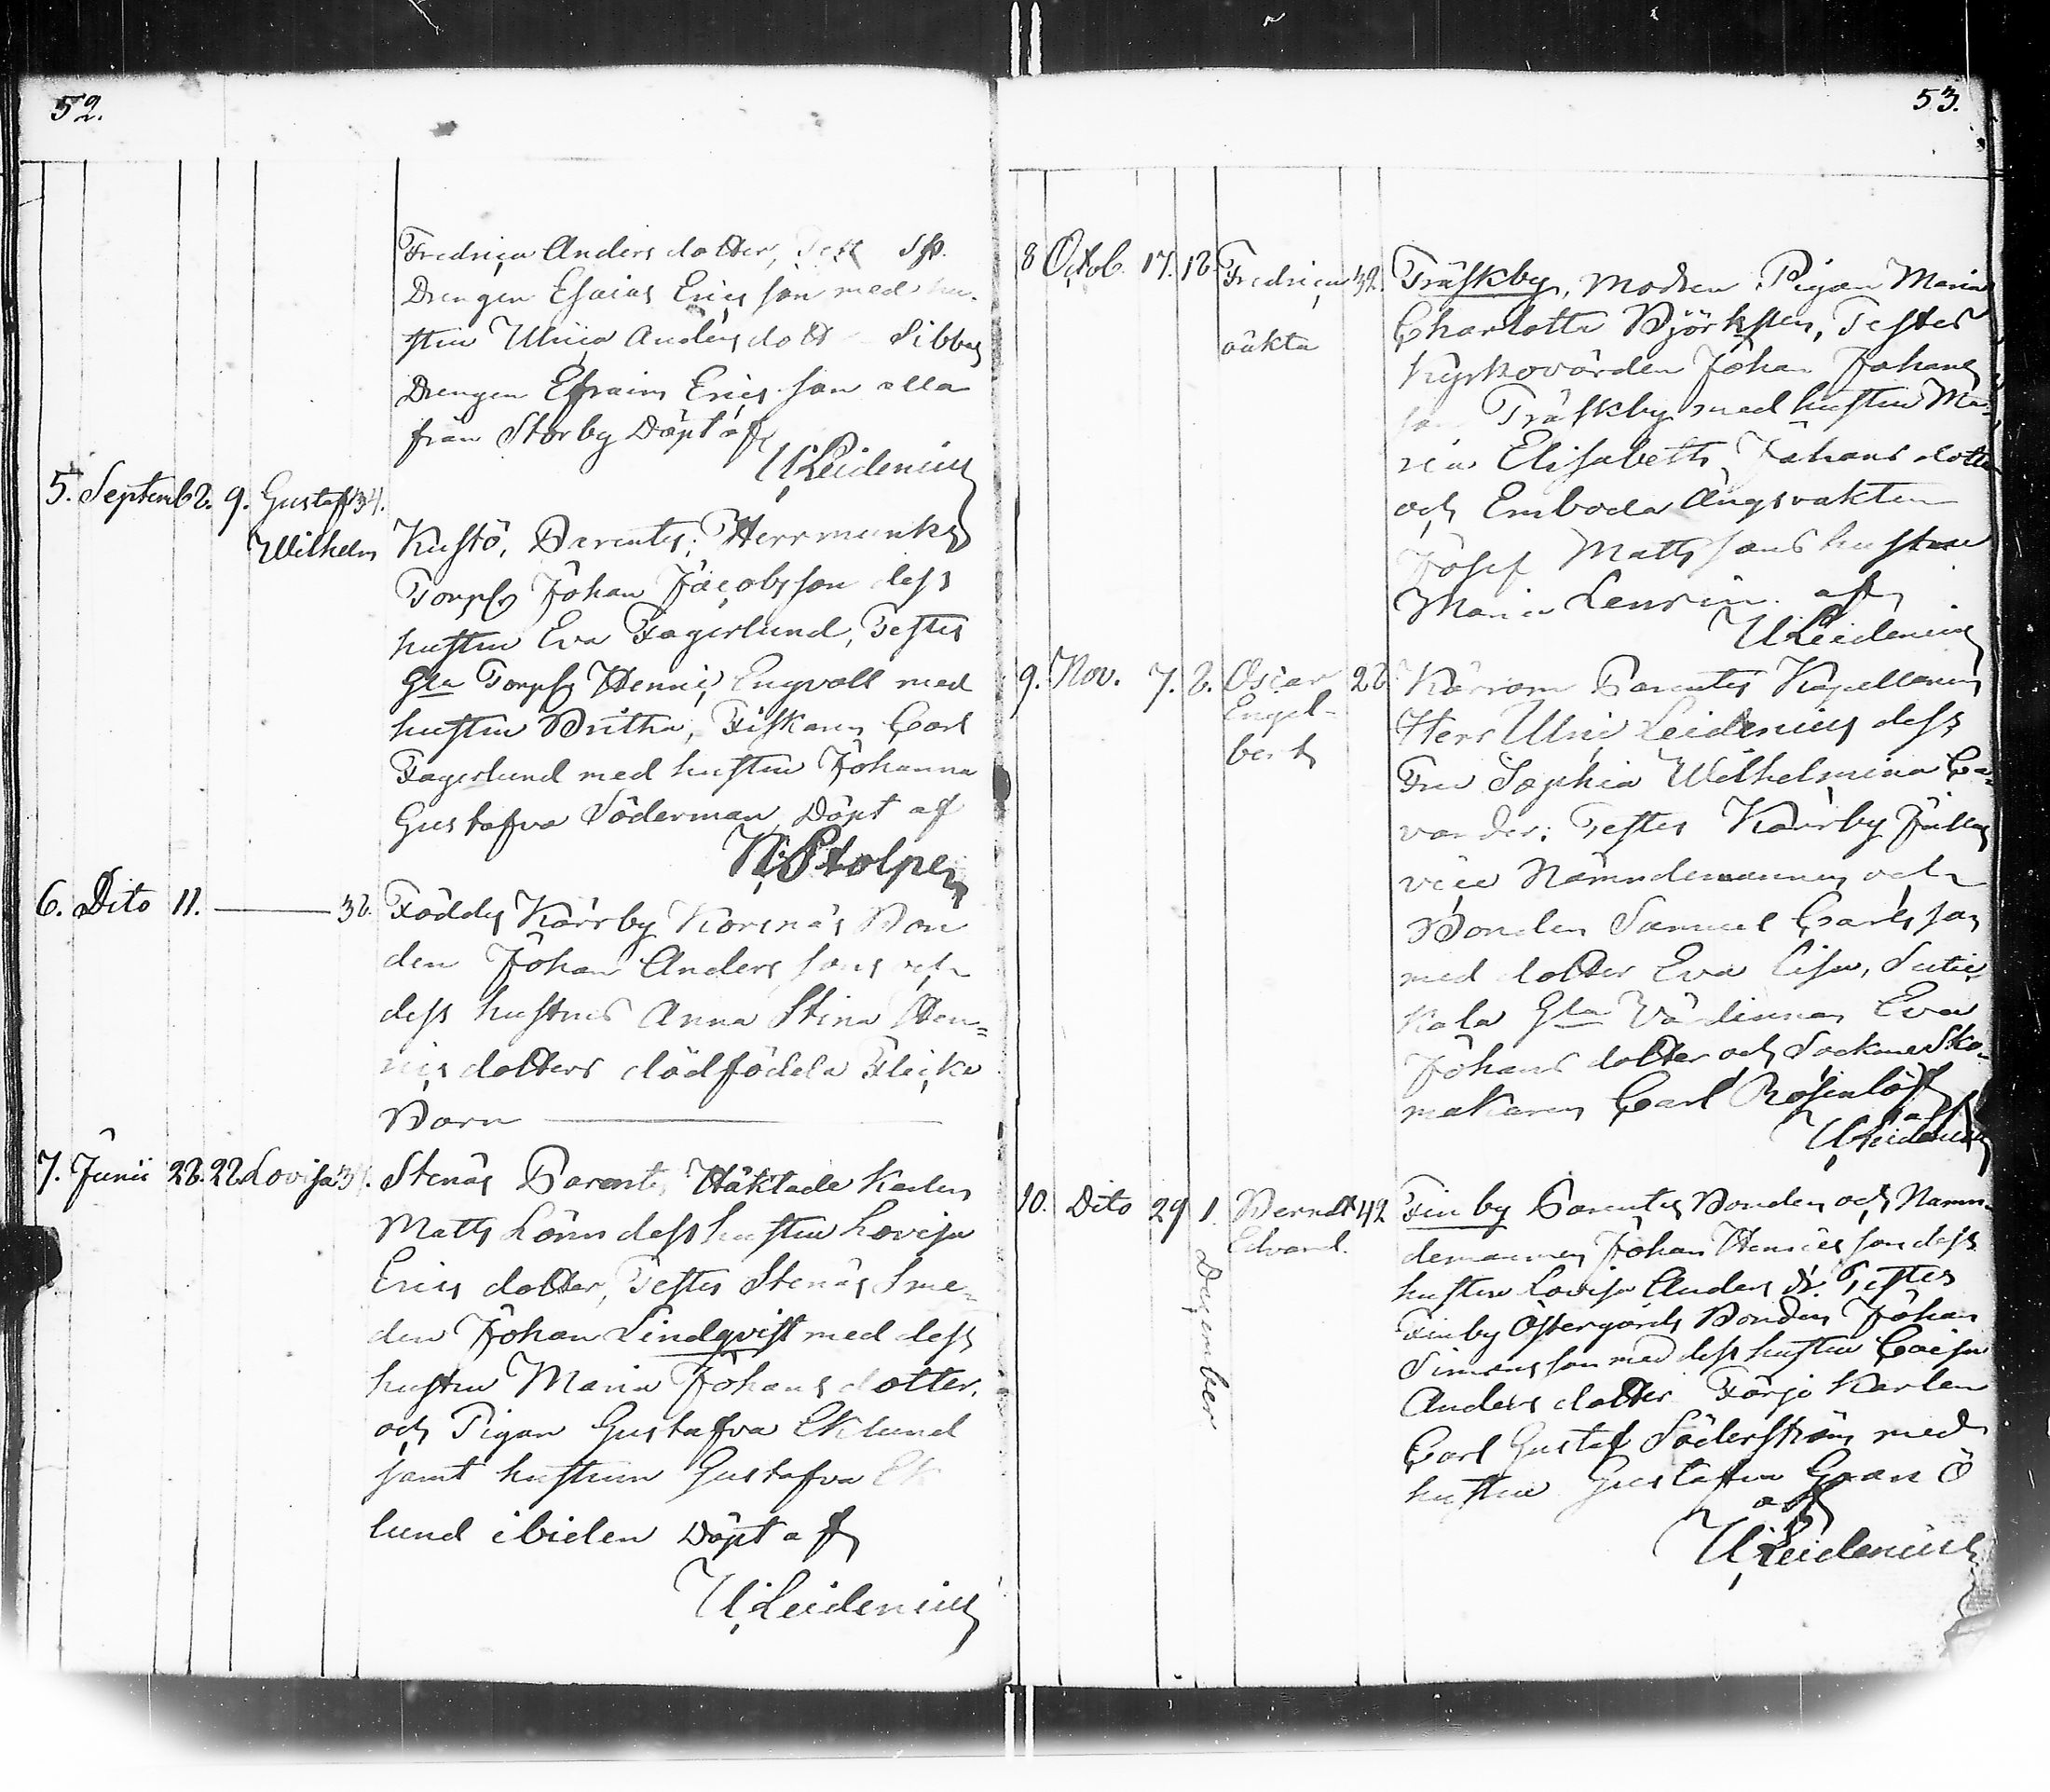 52.
Fredrica Anders dotter, Test
Drengen Esaias Ericsson med hu-
stru Ulrica Anders dott Sibby
Drengen Efraim Ericsson alla
från Storby Döpt af
U. Leidenius
5. Septemb 2. 9. Gustaf 34.
Wilhelm Kustö, Parentes; Herrmunks
Torpr Johan Jacobsson dess
hustru Eva Fagerlund, Testes
Gla Torpr Henric Engvall med
hustru Britha, Fiskaren Carl
Fagerlund med hustru Johanna
Gustafva Söderman Döpt af
N. Stolpe
6. Dito 11. ——— 32. Föddes Kårrby Korsnäs Bon
den Johan Anderssons och
dess hustrus Anna Stina Hen=
rics dotters dödfödda Flicko
Barn ———
7. Junii 22. 22. Lovisa 3. Stenäs Parentes Häktade Karlen
Matts Lönn dess hustru Lovisa
Erics dotter, Testes Stenäs Sme=
den Johan Lindqvist med dess
hustru Maria Johans dotter.
och Pigan Gustafva Eklund
samt hustrun Gustafva Ek
lund ibidem Döpt af
U. Leidenius
53.
8 Octob. 17. 18. Fredrica 32. Träskby, Modren Pigan Maria
oäkta Charlotta Björksten, Testes
Kyrkovärden Johan Johans
son Träskby med hustru Ma-
ria Elisabeth Johans dotter
och Emboda Ängsvakten
Josef Mattssons hustru
Maria Lenrin. af
U. Leidenius
9. Nov. 7. 8. Oscar 28 Kårrom Parentes Kapellanen
Engel- Herr Ulric Leidenius dess
bert Fru Sophia Wilhelmina Ca-
vander: Testes Kårrby Jullas
vice Nämndemannen och
Bonden Samuel Carlsson
med dotter Eva Lisa, Sutic
kala Gla Värdinnan Eva
Johans dotter och Sockne Sko-
makaren Carl Rosenlöf
af
U. Leidenius
10. Dito 29 1. Berndt 42 Finby Parentes Bonden och Nämn-
December Edvard. demannen Johan Henricsson dess
hustru Lovisa Anders dr. Testes
Finby Östergårds Bonden Johan
Simonsson med dess hustru Caisa
Anders dotter Färjo Karlen
Carl Gustaf Söderström med
hustru Gustafva Granö
af
U. Leidenius